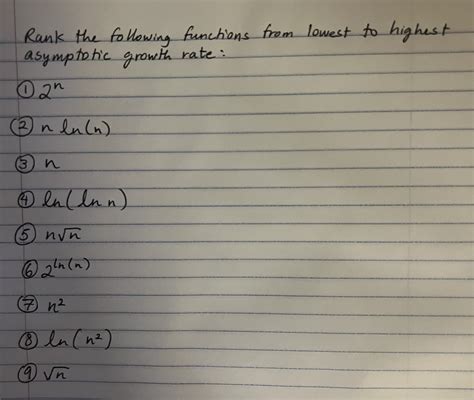 Rank the following functions from lowest to highest
asymptotic growth rate:
① 2ⁿ
② n ln(n)
③ n
④ ln(ln n)
⑤ n√n
⑥ 2^ln(n)
⑦ n²
⑧ ln(n²)
⑨ √n